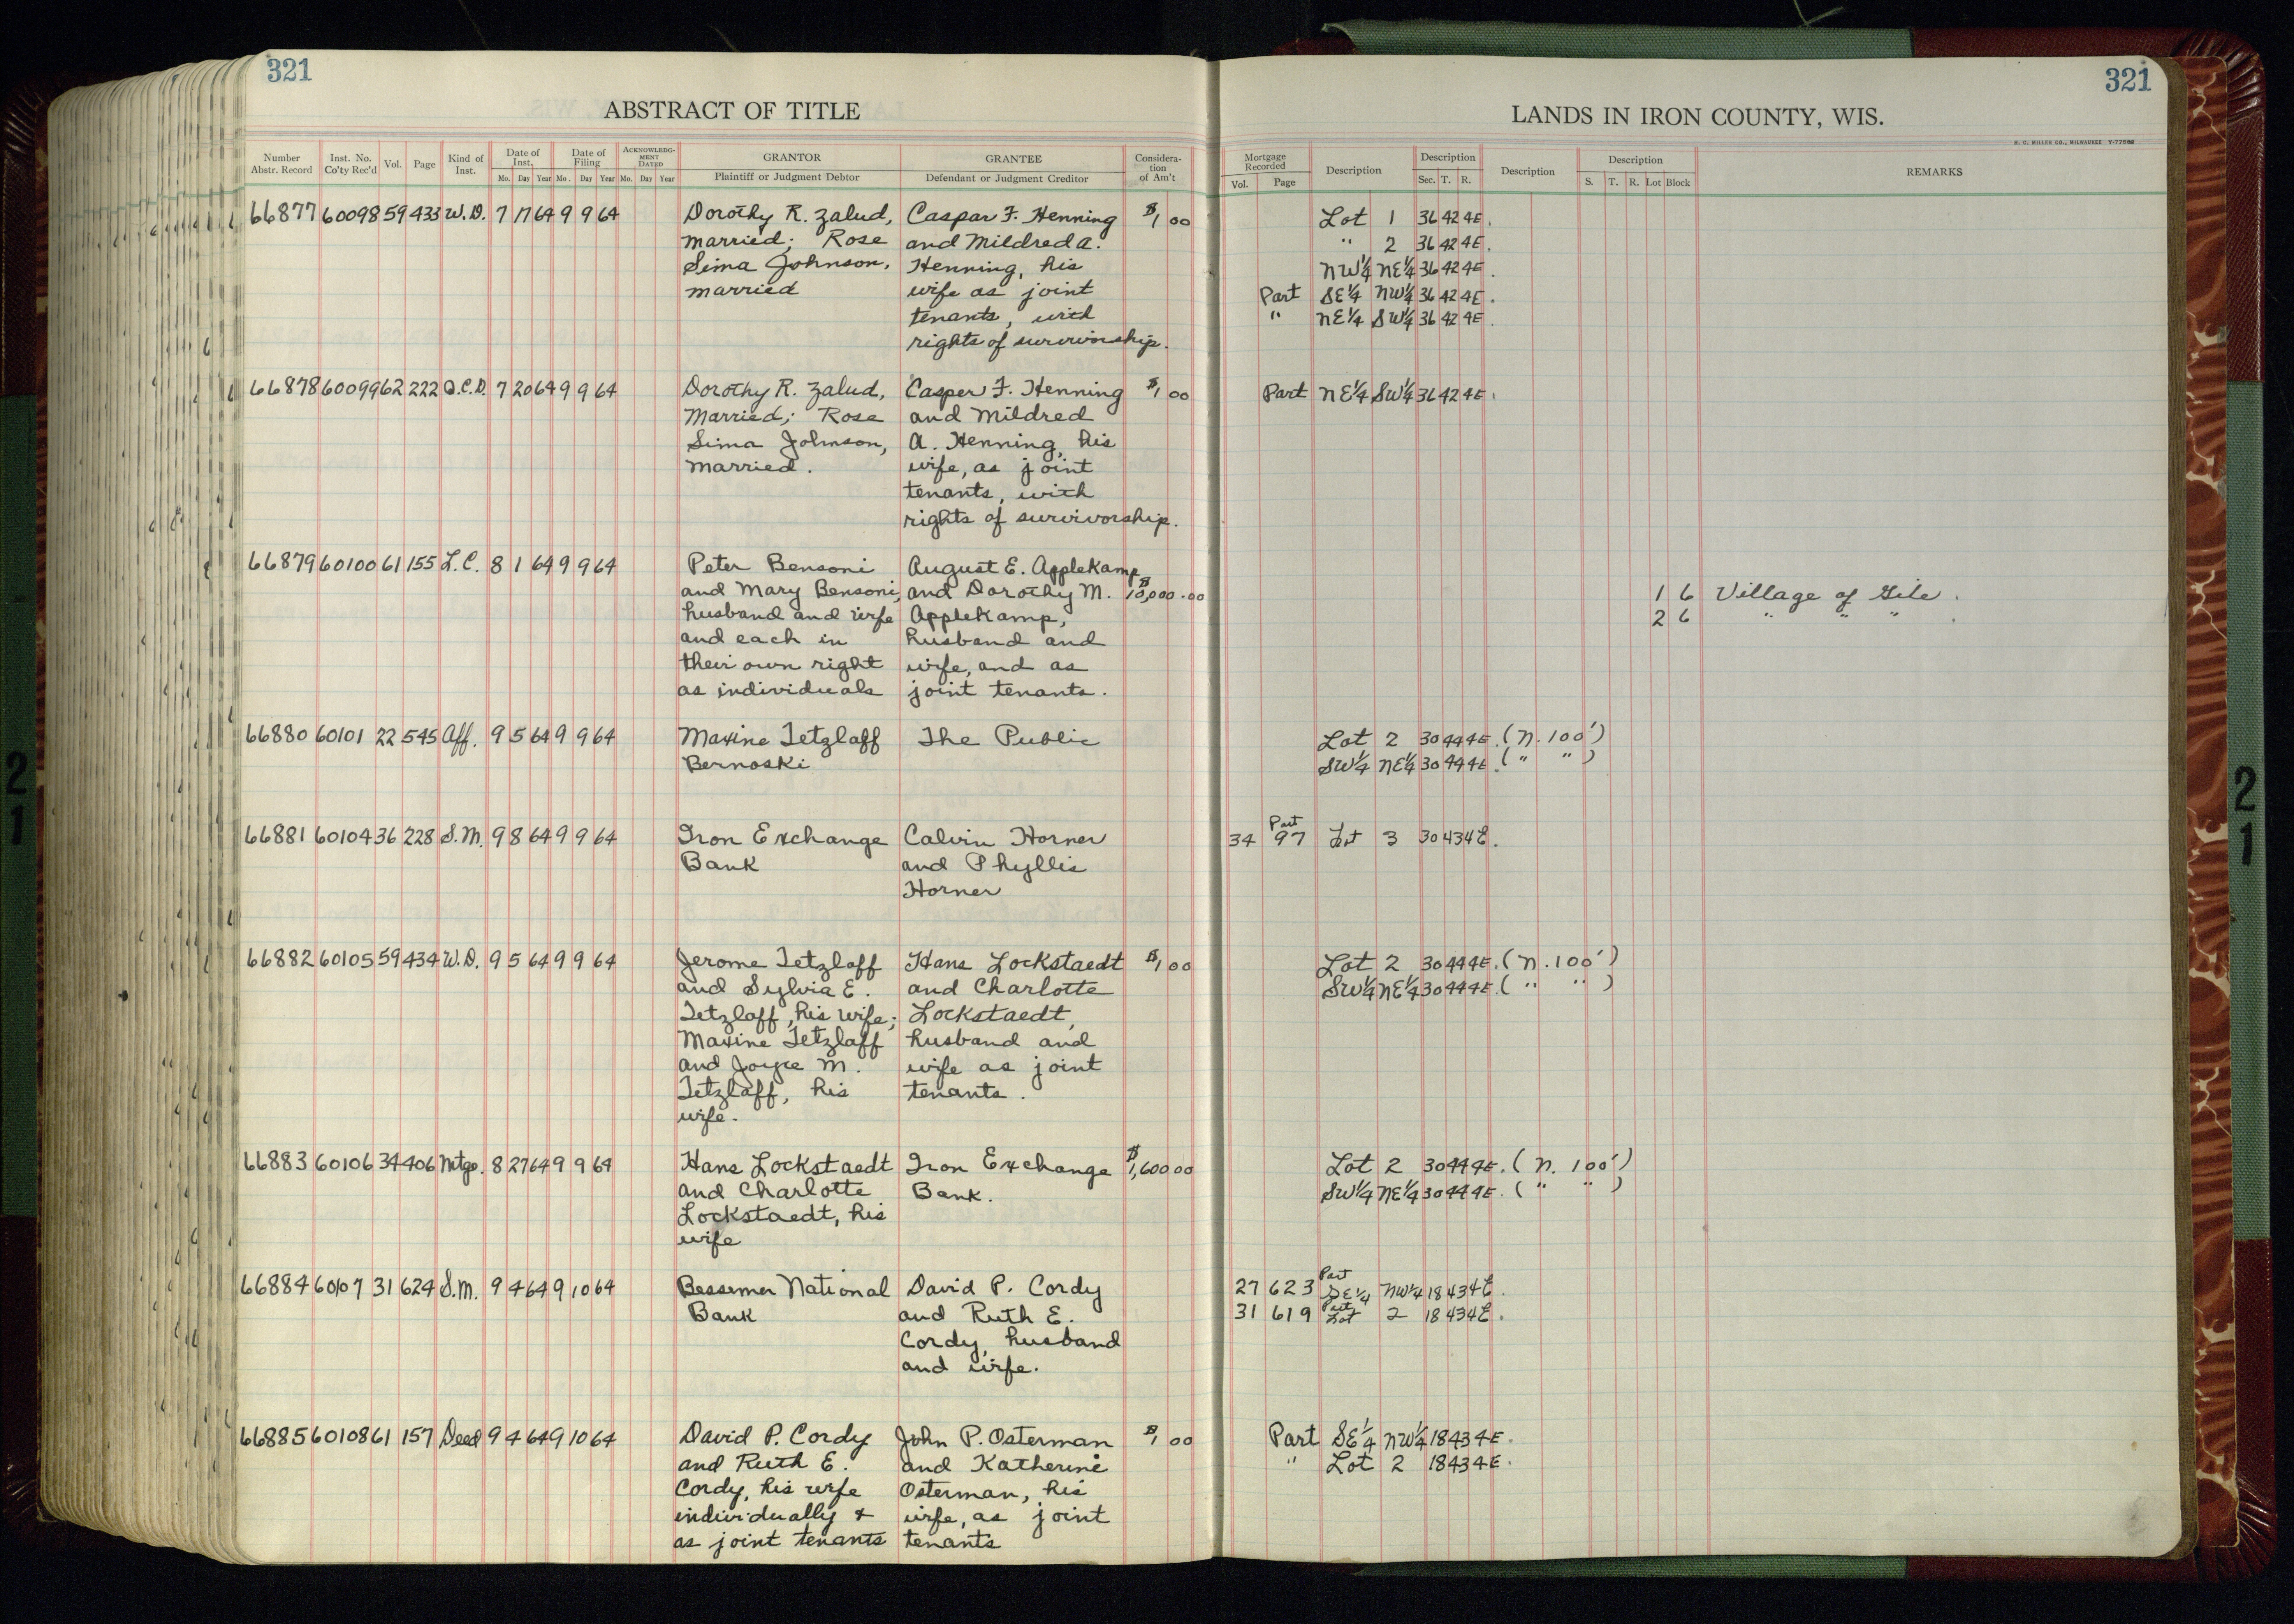 321
321
ABSTRACT OF TITLE
LANDS IN IRON COUNTY, WIS.
H. C. MILLER CO., MILWAUKEE
Number Abstr. Record | Inst. No. Co'ty Rec'd | Vol. | Page | Kind of Inst. | Date of Inst. Mo. Day Year | Date of Filing Mo. Day Year | ACKNOWLEDGMENT DATED Mo. Day Year | GRANTOR Plaintiff or Judgment Debtor | GRANTEE Defendant or Judgment Creditor | Consideration of Am't | Mortgage Recorded Vol. Page | Description | Description Sec. T. R. | Description | Description S. T. R. Lot Block | REMARKS
66877 60098 59 433 W.D. 7 17 64 9 9 64 Dorothy R. Zalud, Caspar F. Henning $1 00 Lot 1 36 42 4E.
married; Rose and Mildred A. " 2 36 42 4E.
Sima Johnson, Henning, his NW¼ NE¼ 36 42 4E.
married wife as joint Part SE¼ NW¼ 36 42 4E.
tenants, with " NE¼ SW¼ 36 42 4E.
rights of survivorship.
66878 60099 62 222 Q.C.D. 7 20 64 9 9 64 Dorothy R. Zalud, Casper F. Henning $1 00 Part NE¼ SW¼ 36 42 4E.
Married; Rose and Mildred
Sima Johnson, A. Henning, his
married. wife, as joint
tenants, with
rights of survivorship.
66879 60100 61 155 L.C. 8 1 64 9 9 64 Peter Bensoni August E. Applekamp
and Mary Bensoni, and Dorothy M. $10,000.00 1 6 Village of Gile.
husband and wife Applekamp, 2 6 " " " .
and each in husband and
their own right wife, and as
as individuals joint tenants.
66880 60101 22 545 Aff. 9 5 64 9 9 64 Maxine Tetzlaff The Public Lot 2 30 44 4E. (N. 100')
Bernoski SW¼ NE¼ 30 44 4E. (" ")
66881 60104 36 228 S.M. 9 8 64 9 9 64 Iron Exchange Calvin Horner 34 97 Part Lot 3 30 43 4E.
Bank and Phyllis
Horner
66882 60105 59 434 W.D. 9 5 64 9 9 64 Jerome Tetzlaff Hans Lockstaedt $1 00 Lot 2 30 44 4E. (N. 100')
and Sylvia E. and Charlotte SW¼ NE¼ 30 44 4E. (" ")
Tetzlaff, his wife; Lockstaedt,
Maxine Tetzlaff husband and
and Joyce M. wife as joint
Tetzlaff, his tenants.
wife.
66883 60106 34 406 Mtge. 8 27 64 9 9 64 Hans Lockstaedt Iron Exchange $1,600 00 Lot 2 30 44 4E. (N. 100')
and Charlotte Bank. SW¼ NE¼ 30 44 4E. (" ")
Lockstaedt, his
wife
66884 60107 31 624 S.M. 9 4 64 9 10 64 Bessemer National David P. Cordy 27 623 Part SE¼ NW¼ 18 43 4E.
Bank and Ruth E. 31 619 Part Lot 2 18 43 4E.
Cordy, husband
and wife.
66885 60108 61 157 Deed 9 4 64 9 10 64 David P. Cordy John P. Osterman $1 00 Part SE¼ NW¼ 18 43 4E.
and Ruth E. and Katherine " Lot 2 18 43 4E.
Cordy, his wife Osterman, his
individually & wife, as joint
as joint tenants tenants
2
1
2
1